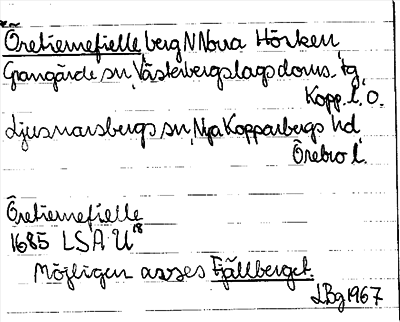 Öretiernefielle, berg N Norra Hörken,
Grangärde sn, Västerbergslags doms. tg,
Kopp. l. o.
Ljusnarsbergs sn, Nya Kopparbergs hd,
Örebro l.
Öretiernefielle
1685 LSA U18
Möjligen avses Fjällberget.
LBg 1967